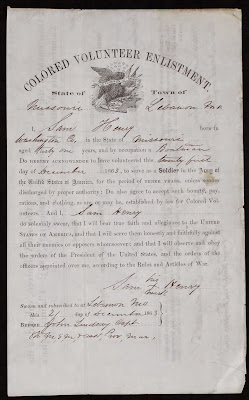 COLORED VOLUNTEER ENLISTMENT.
State of Town of
Missouri Lebanon Mo
I, Sam Henry born in
Washington Co. in the State of Missouri
aged thirty one years, and by occupation a Boatman
DO HEREBY ACKNOWLEDGE to have volunteered this twenty first
day of December 1863, to serve as a Soldier in the Army of
the United States of America, for the period of THREE YEARS, unless sooner
discharged by proper authority: Do also agree to accept such bounty, pay,
rations, and clothing, as are or may be, established by law for Colored Vol-
unteers. And I, Sam Henry
do solemnly swear, that I will bear true faith and allegiance to the UNITED
STATES OF AMERICA, and that I will serve them honestly and faithfully against
all their enemies or opposers whomsoever; and that I will observe and obey
the orders of the President of the United States, and the orders of the
officers appointed over me, according to the Rules and Articles of War.
his
Sam X Henry
mark
Sworn and subscribed to at Lebanon Mo
this 21 day of December 1863
BEFORE John Lindsey Capt